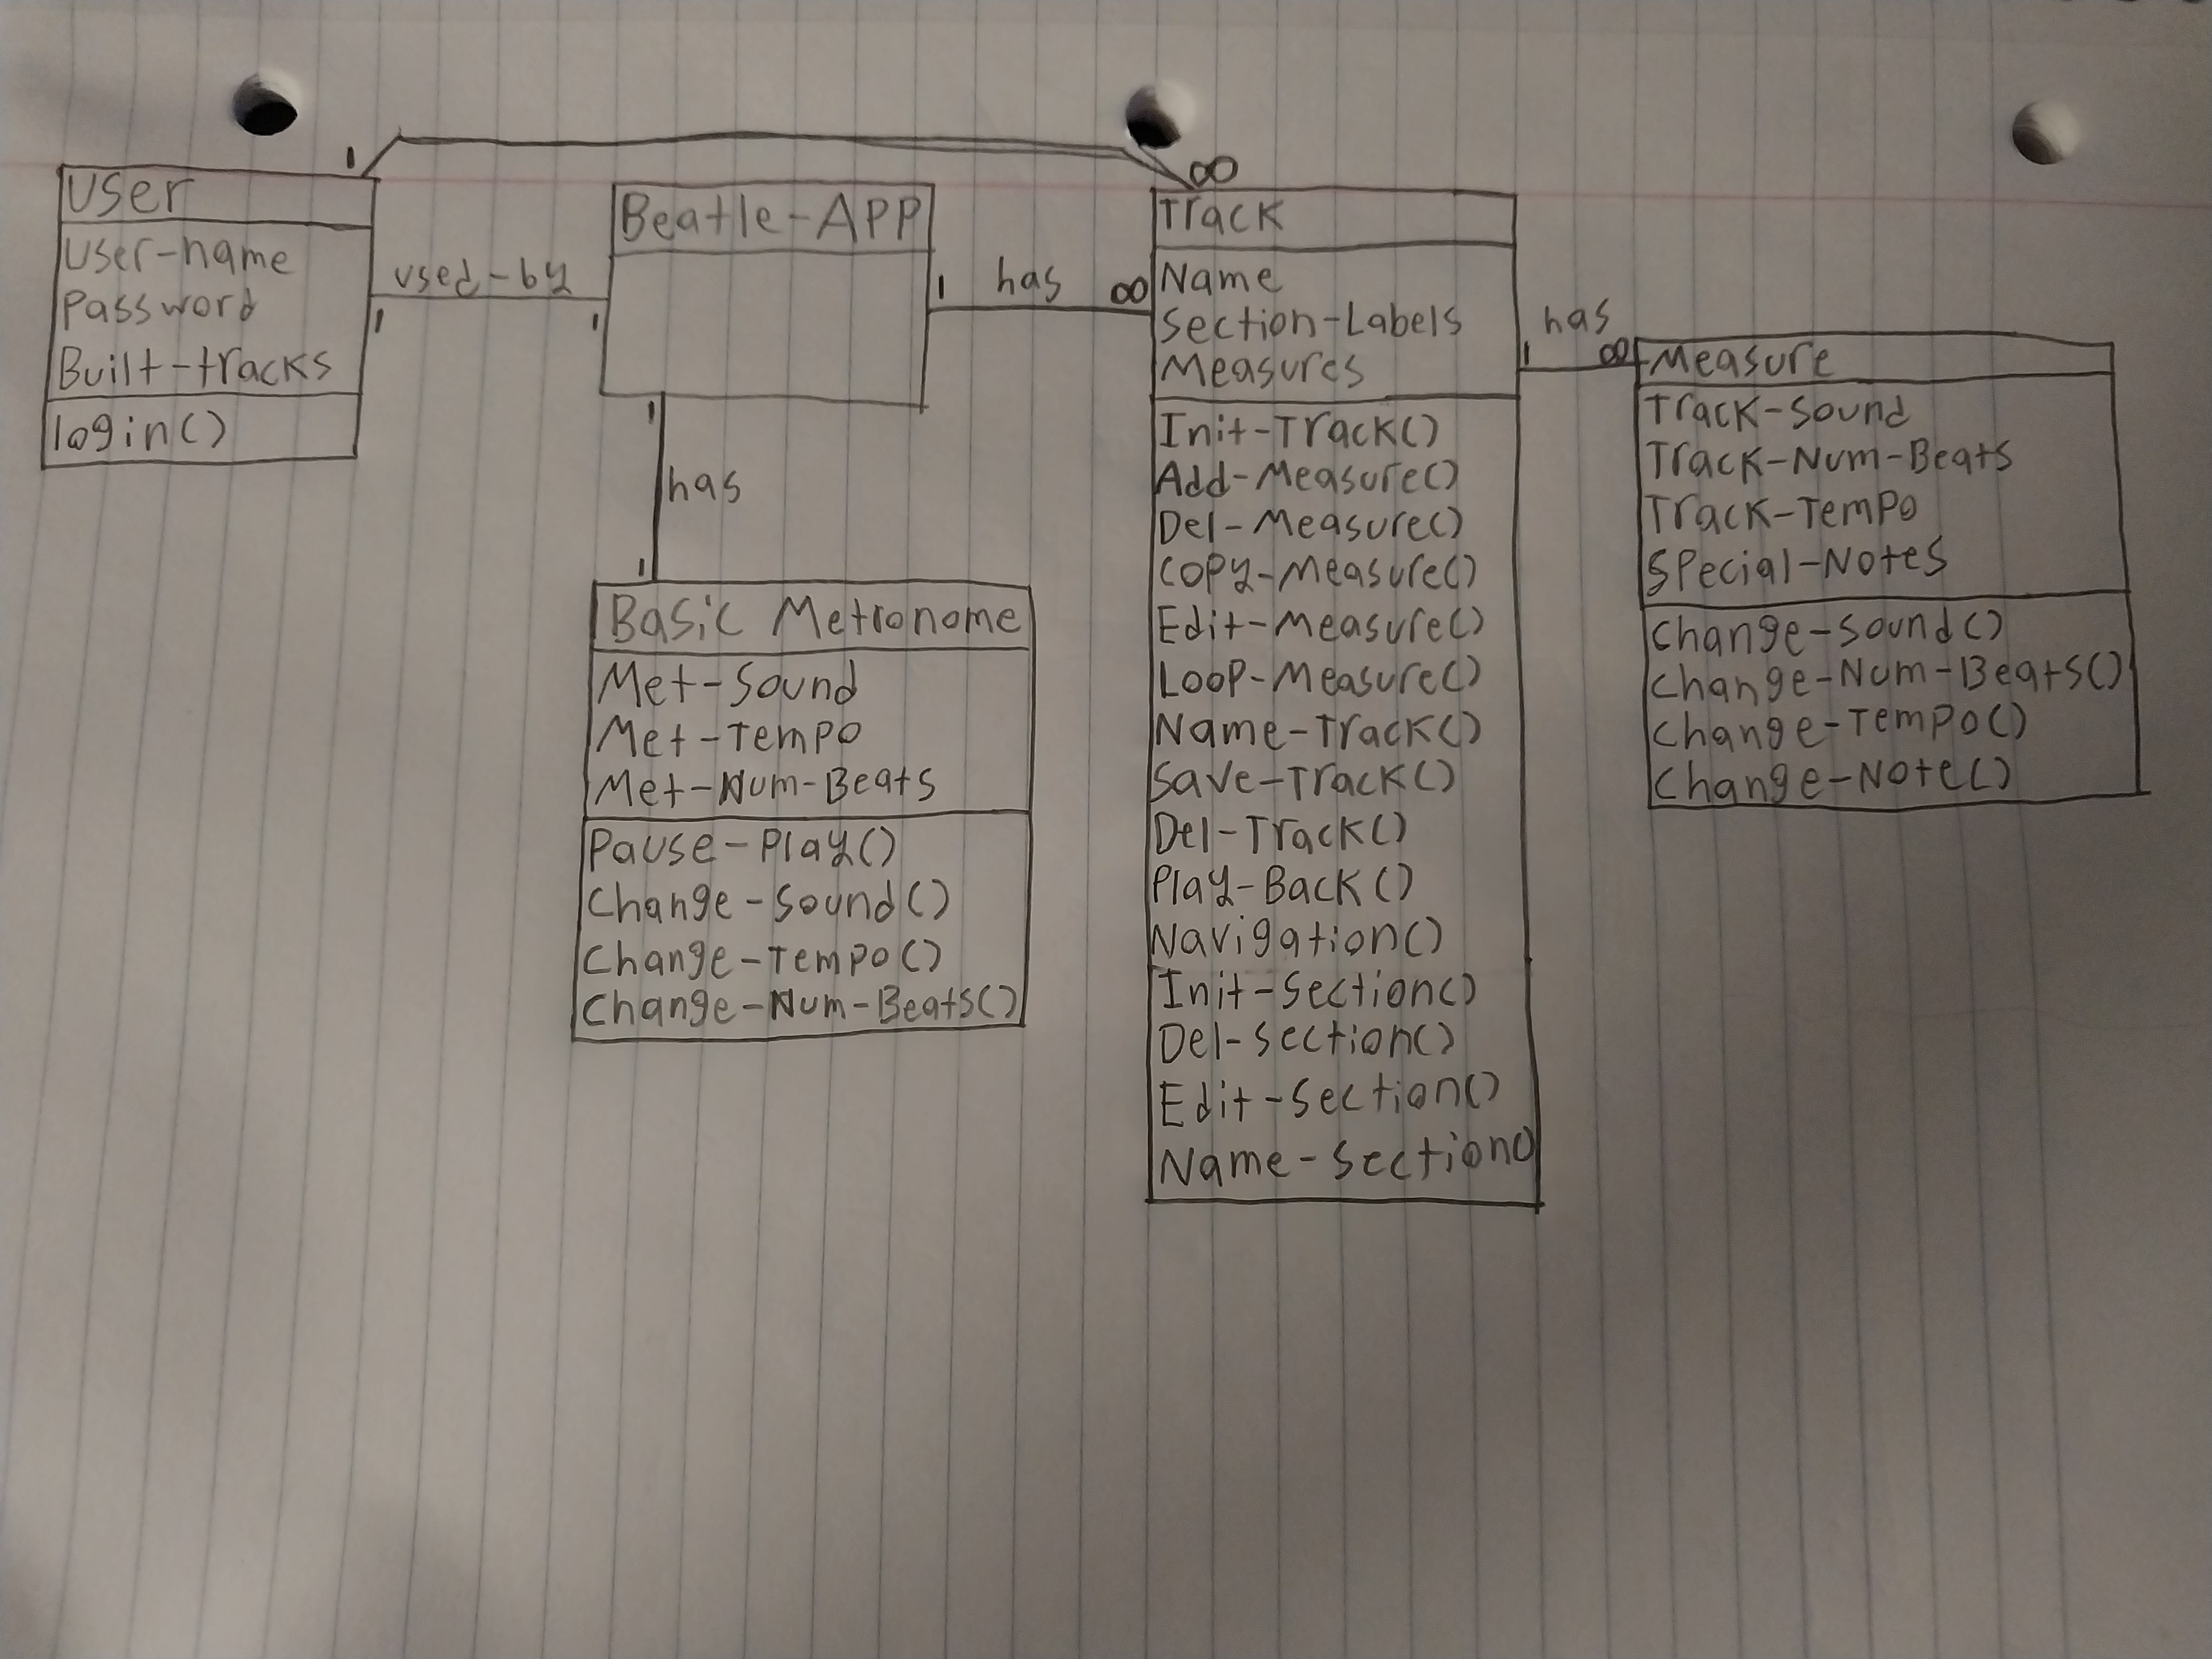 User
User-name
Password
Built-tracks
login()
1
1
used-by
1
Beatle-App
1
has
1
Basic Metronome
Met-Sound
Met-Tempo
Met-Num-Beats
Pause-Play()
Change-Sound()
Change-Tempo()
Change-Num-Beats()
1
has
∞
∞
Track
Name
Section-Labels
Measures
Init-Track()
Add-Measure()
Del-Measure()
Copy-Measure()
Edit-Measure()
Loop-Measure()
Name-Track()
Save-Track()
Del-Track()
Play-Back()
Naviggation()
Init-Section()
Del-Section()
Edit-Section()
Name-Section()
1
has
∞
Measure
Track-Sound
Track-Num-Beats
Track-Tempo
Special-Notes
Change-Sound()
Change-Num-Beats()
Change-Tempo()
Change-Note()